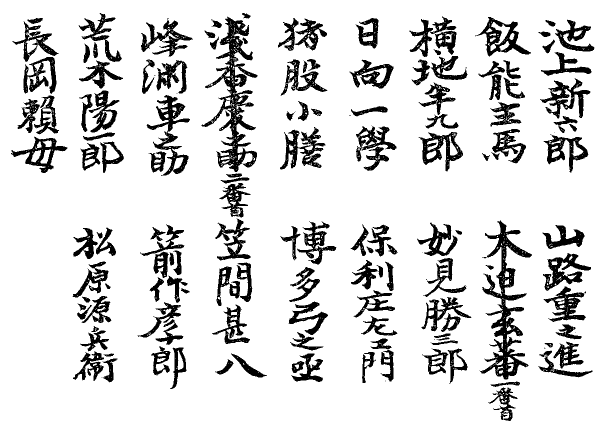 池上新六郎
飯能主馬
横地半九郎
日向一學
猪股小膳
浅香慶之助二番首
峰渕車之助
荒木陽一郎
長岡賴母
山路重之進
木迫玄蕃一番首
妙見勝三郎
保利庄左エ門
博多弓之亟
笠間甚八
箭作彦十郎
松原源兵衛